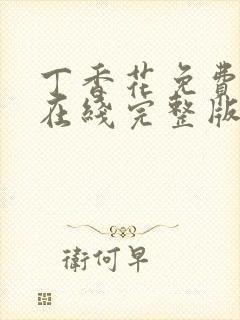 丁香花免費
在綫完整版
衛何早